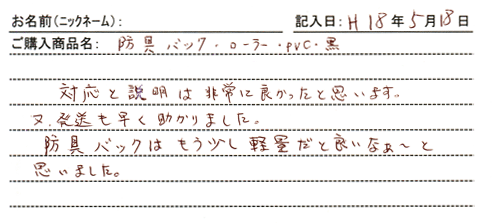 お名前(ニックネーム): 記入日: H 18年5月18日
ご購入商品名: 防具バック・ローラー・PVC・黒
対応と説明は非常に良かったと思います。
又、発送も早く助かりました。
防具バックはもう少し軽量だと良いなぁ〜と
思いました。